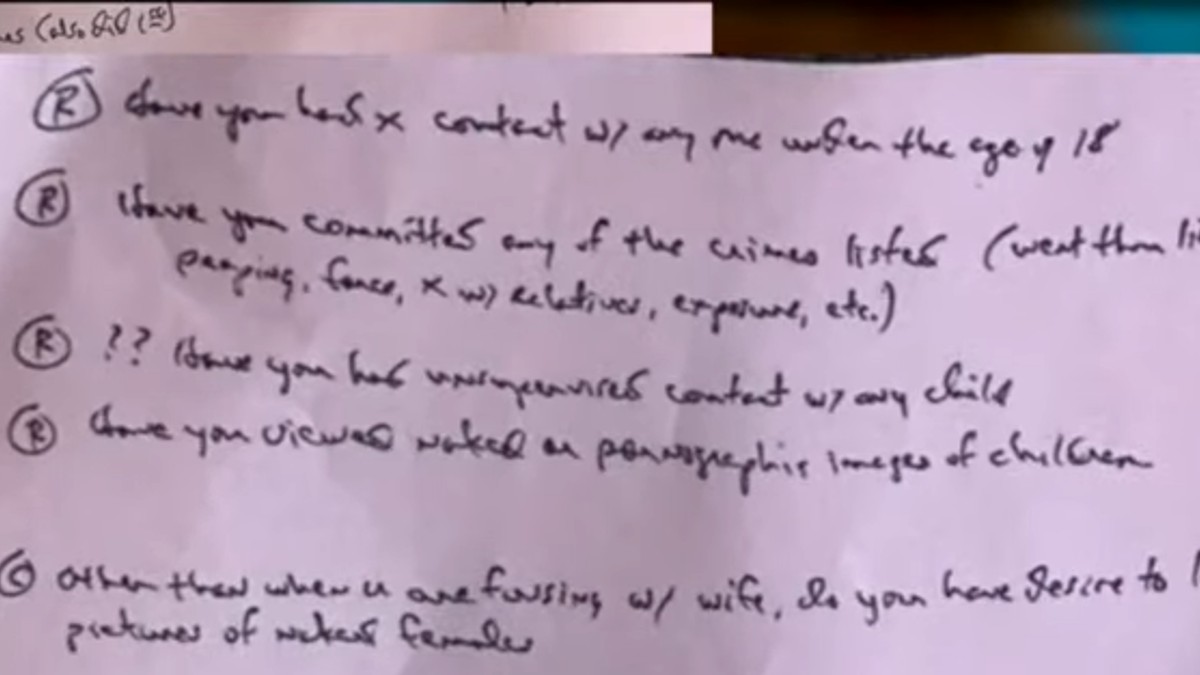 (also did
(R) Have you had x contact w/ any one under the age of 18
(R) Have you committed any of the crimes listed (went thru
peeping, force, x w/ relatives, exposure, etc.)
(R) ?? Have you had unsupervised contact w/ any child
(R) Have you viewed naked or pornographic images of children
(C) Other than when u are fussing w/ wife, do you have desire to
pictures of naked females